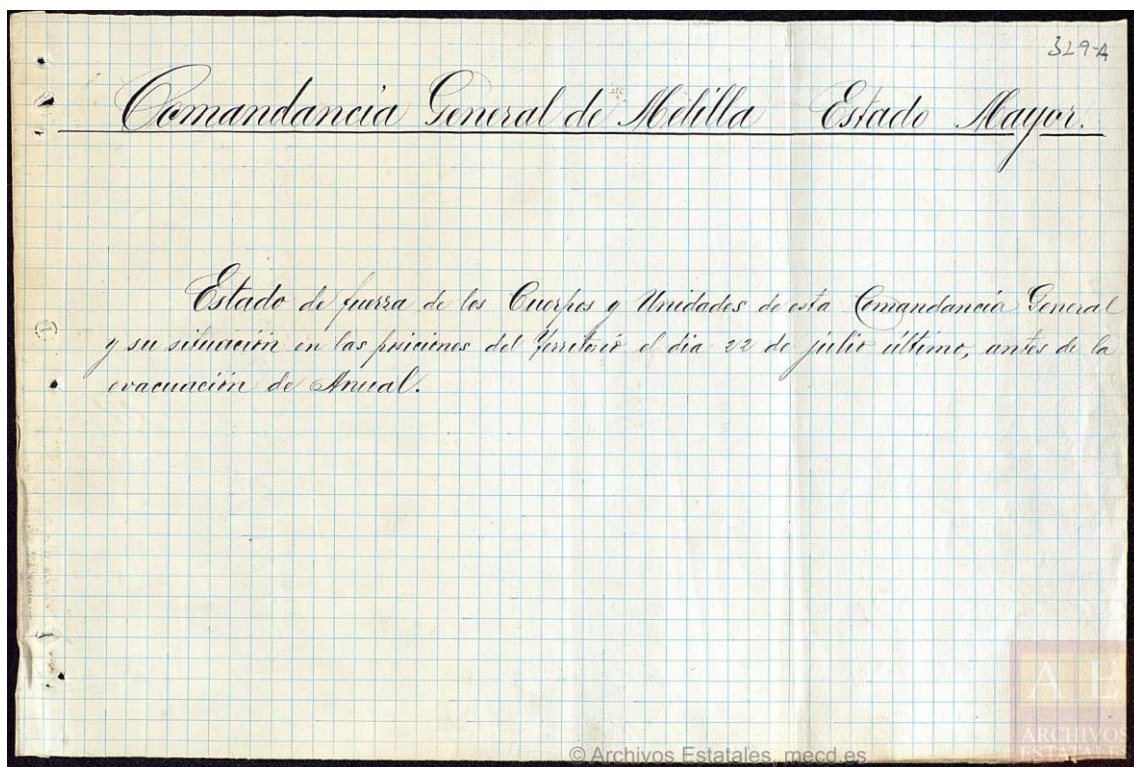 329-A
Comandancia General de Melilla Estado Mayor.
Estado de fuerza de los Cuerpos y Unidades de esta Comandancia General
y su situación en las posiciones del territorio el dia 22 de julio último, antes de la
evacuación de Anual.
A E
ARCHIVOS
ESTATALES
© Archivos Estatales, mecd.es